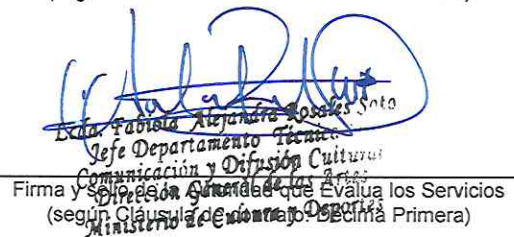 Lcda. Fabiola Alejandra Rosales Soto
Jefe Departamento Técnico
Comunicación y Difusión Cultural
Dirección General de las Artes
Ministerio de Cultura y Deportes
Firma y sello de la Autoridad que Evalúa los Servicios
(según Cláusula de contrato: Décima Primera)